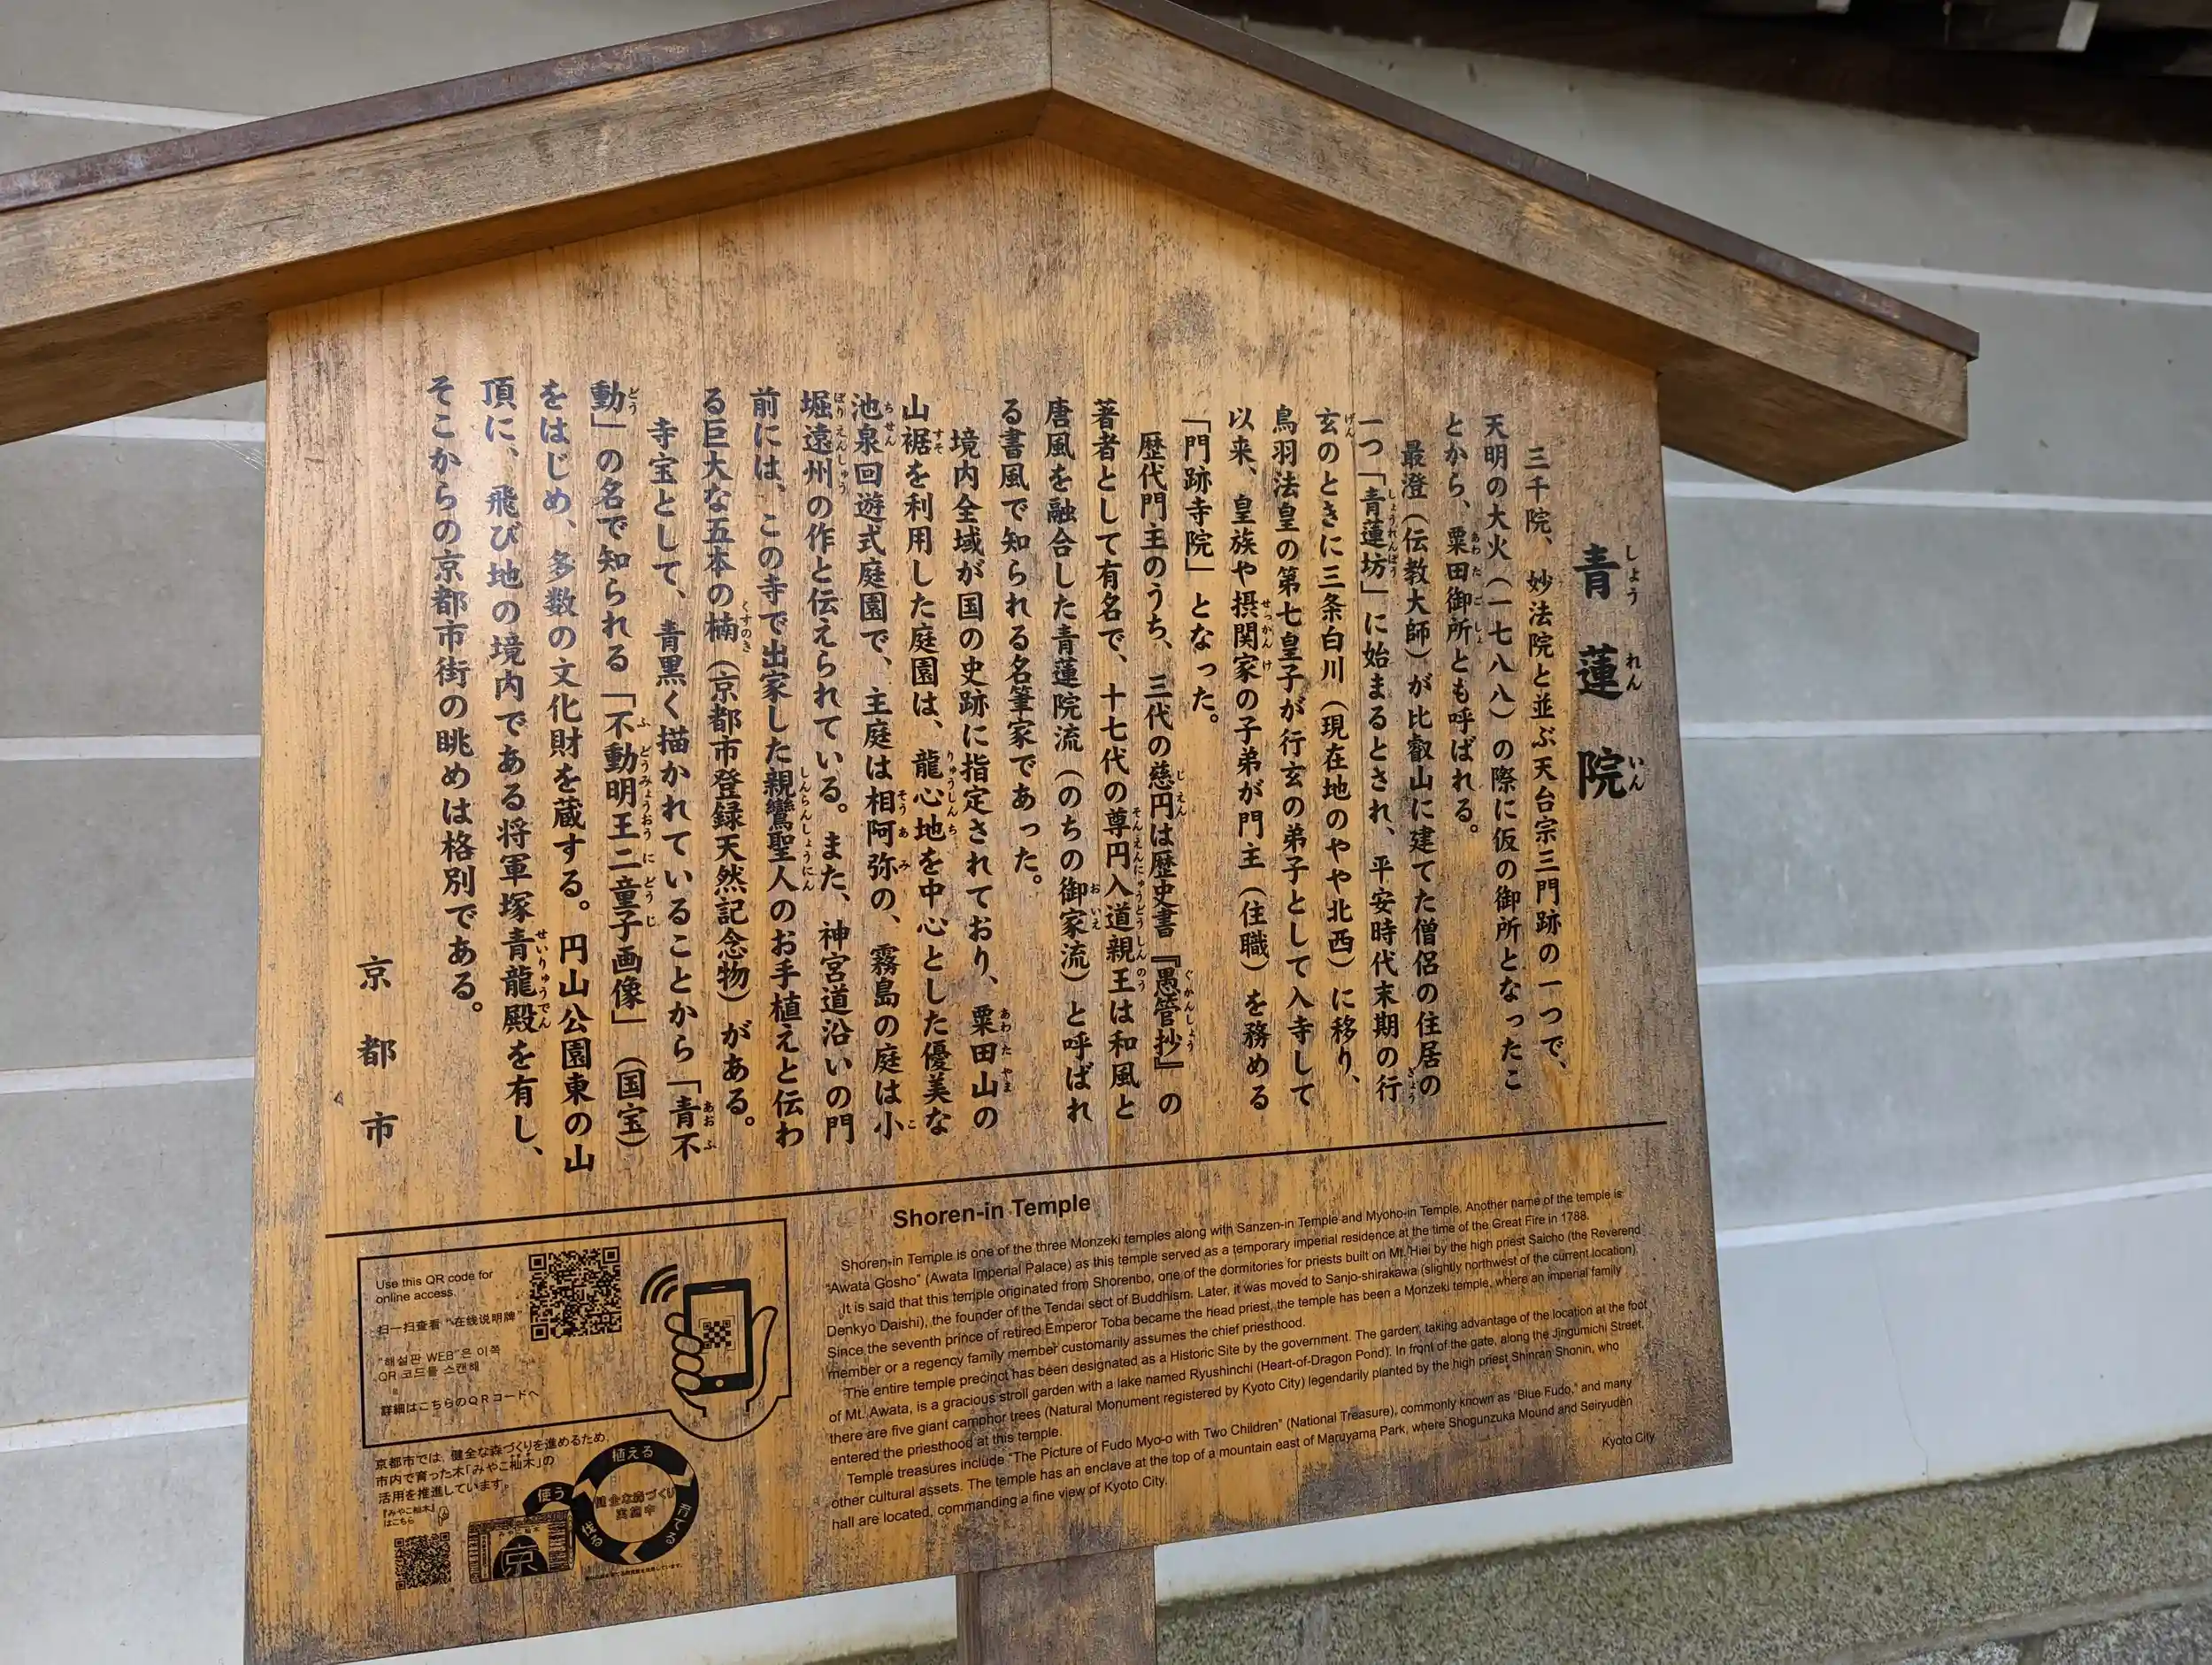 青蓮院
しょうれんいん
三千院、妙法院と並ぶ天台宗三門跡の一つで、
天明の大火（一七八八）の際に仮の御所となったこ
とから、粟田御所とも呼ばれる。
あわたごしょ
最澄（伝教大師）が比叡山に建てた僧侶の住居の
一つ「青蓮坊」に始まるとされ、平安時代末期の行
しょうれんぼう
ぎょう
玄のときに三条白川（現在地のやや北西）に移り、
げん
鳥羽法皇の第七皇子が行玄の弟子として入寺して
以来、皇族や摂関家の子弟が門主（住職）を務める
せっかんけ
「門跡寺院」となった。
歴代門主のうち、三代の慈円は歴史書『愚管抄』の
じえん
ぐかんしょう
著者として有名で、十七代の尊円入道親王は和風と
そんえんにゅうどうしんのう
唐風を融合した青蓮院流（のちの御家流）と呼ばれ
おいえ
る書風で知られる名筆家であった。
境内全域が国の史跡に指定されており、粟田山の
あわたやま
山裾を利用した庭園は、龍心池を中心とした優美な
すそ
りゅうしんち
池泉回遊式庭園で、主庭は相阿弥の、霧島の庭は小
ちせん
そうあみ
こ
堀遠州の作と伝えられている。また、神宮道沿いの門
ぼりえんしゅう
前には、この寺で出家した親鸞聖人のお手植えと伝わ
しんらんしょうにん
る巨大な五本の楠（京都市登録天然記念物）がある。
くすのき
寺宝として、青黒く描かれていることから「青不
あおふ
動」の名で知られる「不動明王二童子画像」（国宝）
どう
ふどうみょうおうにどうじ
をはじめ、多数の文化財を蔵する。円山公園東の山
頂に、飛び地の境内である将軍塚青龍殿を有し、
せいりゅうでん
そこからの京都市街の眺めは格別である。
京都市
Shoren-in Temple
Shoren-in Temple is one of the three Monzeki temples along with Sanzen-in Temple and Myoho-in Temple. Another name of the temple is
"Awata Gosho" (Awata Imperial Palace) as this temple served as a temporary imperial residence at the time of the Great Fire in 1788.
It is said that this temple originated from Shorenbo, one of the dormitories for priests built on Mt. Hiei by the high priest Saicho (the Reverend
Denkyo Daishi), the founder of the Tendai sect of Buddhism. Later, it was moved to Sanjo-shirakawa (slightly northwest of the current location).
Since the seventh prince of retired Emperor Toba became the head priest, the temple has been a Monzeki temple, where an imperial family
member or a regency family member customarily assumes the chief priesthood.
The entire temple precinct has been designated as a Historic Site by the government. The garden, taking advantage of the location at the foot
of Mt. Awata, is a gracious stroll garden with a lake named Ryushinchi (Heart-of-Dragon Pond). In front of the gate, along the Jingumichi Street,
there are five giant camphor trees (Natural Monument registered by Kyoto City) legendarily planted by the high priest Shinran Shonin, who
entered the priesthood at this temple.
Temple treasures include "The Picture of Fudo Myo-o with Two Children" (National Treasure), commonly known as "Blue Fudo," and many
other cultural assets. The temple has an enclave at the top of a mountain east of Maruyama Park, where Shogunzuka Mound and Seiryuden
hall are located, commanding a fine view of Kyoto City.
Kyoto City
Use this QR code for
online access.
扫一扫查看 "在线说明牌"
"해설판 WEB"은 이쪽
QR 코드를 스캔해
詳細はこちらのQRコードへ
京都市では、健全な森づくりを進めるため、
市内で育った木「みやこ杣木」の
活用を推進しています。
『みやこ杣木』
はこちら
植える
育てる
伐る
使う
健全な森づくり
実施中
みやこ杣木
京